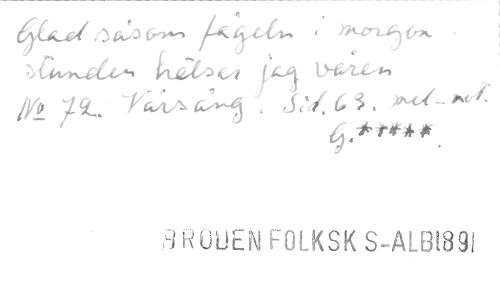 Glad såsom fågeln i morgon-
stunden hälsar jag våren
No 72. Vårsång. Sid. 63. mel-not.
G. *****.
BRODEN FOLKSK S-ALB1891